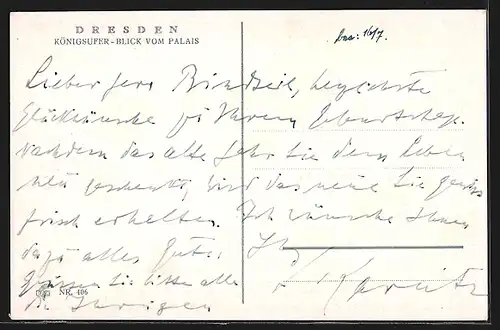 DRESDEN
KÖNIGSUFER - BLICK VOM PALAIS
bea: 16/7.
Lieber Herr Bindseil, herzlichste
Glückwünsche zu Ihrem Geburtstage.
Nachdem das alte Jahr Sie dem Leben
neu geschenkt, wird das neue Sie
frisch erhalten. Ich wünsche Ihnen
dazu alles Gute.
Ihr
Grüssen Sie bitte alle
NR. 406
die Ihrigen